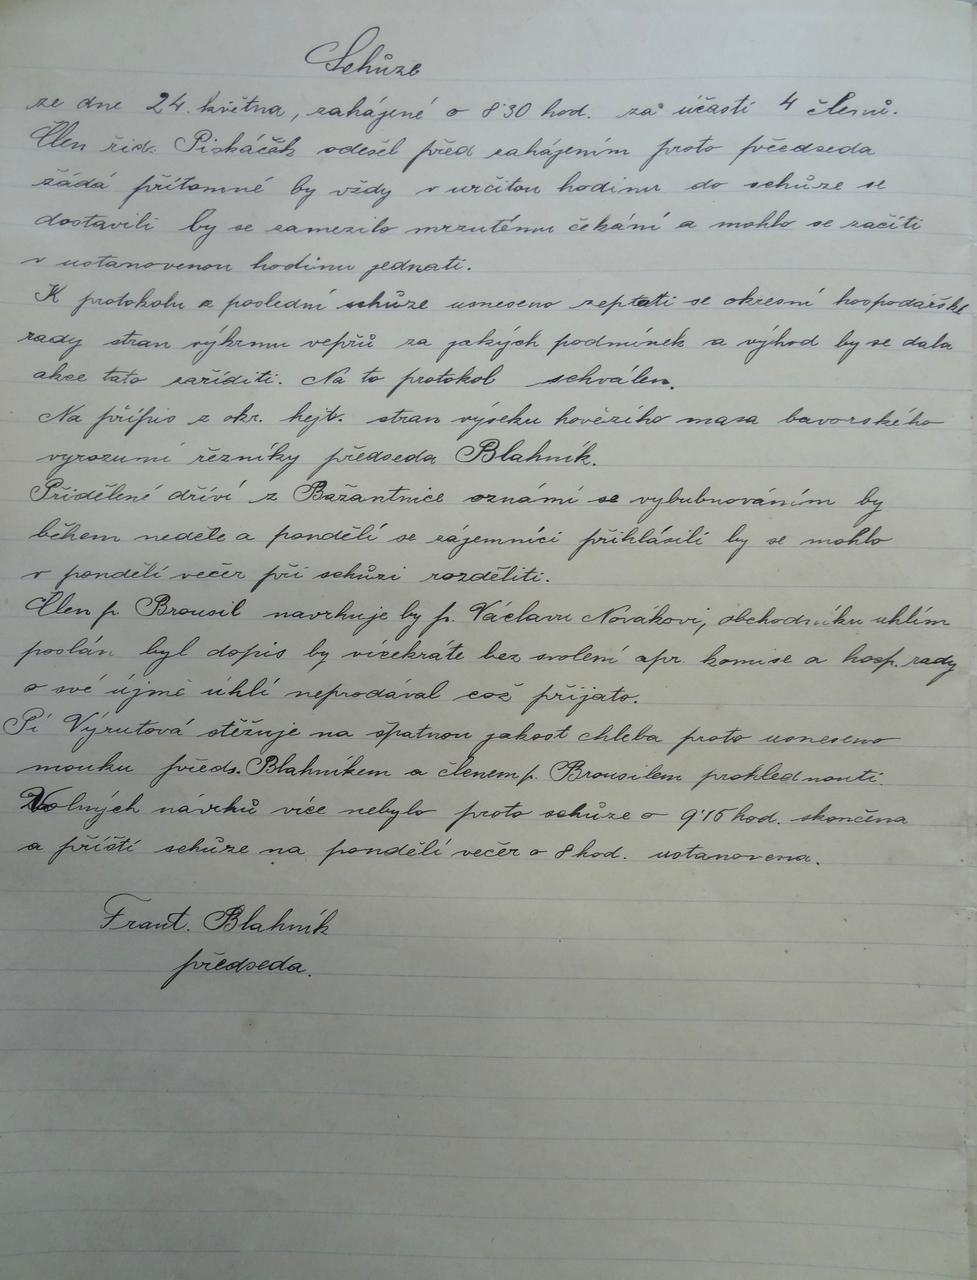 Schůze
ze dne 24. května, zahájené o 8'30 hod. za účasti 4 členů.
Člen řid. Piskáček odešel před zahájením proto předseda
žádá přítomné by vždy v určitou hodinu do schůze se
dostavili by se zamezilo mrzutému čekání a mohlo se začíti
v ustanovenou hodinu jednati.
K protokolu z poslední schůze usneseno zeptati se okresní hospodářské
rady stran výkrmu vepřů za jakých podmínek a výhod by se dala
akce tato zaříditi. Na to protokol schválen.
Na přípis z okr. hejt. stran výseku hovězího masa bavorského
vyrozumí řezníky předseda Blahník.
Přidělené dříví z Bažantnice oznámí se vybubnováním by
během neděle a pondělí se zájemníci přihlásili by se mohlo
v pondělí večer při schůzi rozděliti.
Člen p. Brousil navrhuje by p. Václavu Novákovi, obchodníku uhlím
poslán byl dopis by vícekráte bez svolení apr. komise a hosp. rady
o své újmě uhlí neprodával což přijato.
Pí Výrutová stěžuje na špatnou jakost chleba proto usneseno
mouku předs. Blahníkem a členem p. Brousilem prohlednouti.
Volných návrhů více nebylo proto schůze o 9'15 hod. skončena
a příští schůze na pondělí večer o 8 hod. ustanovena.
Frant. Blahník
předseda.